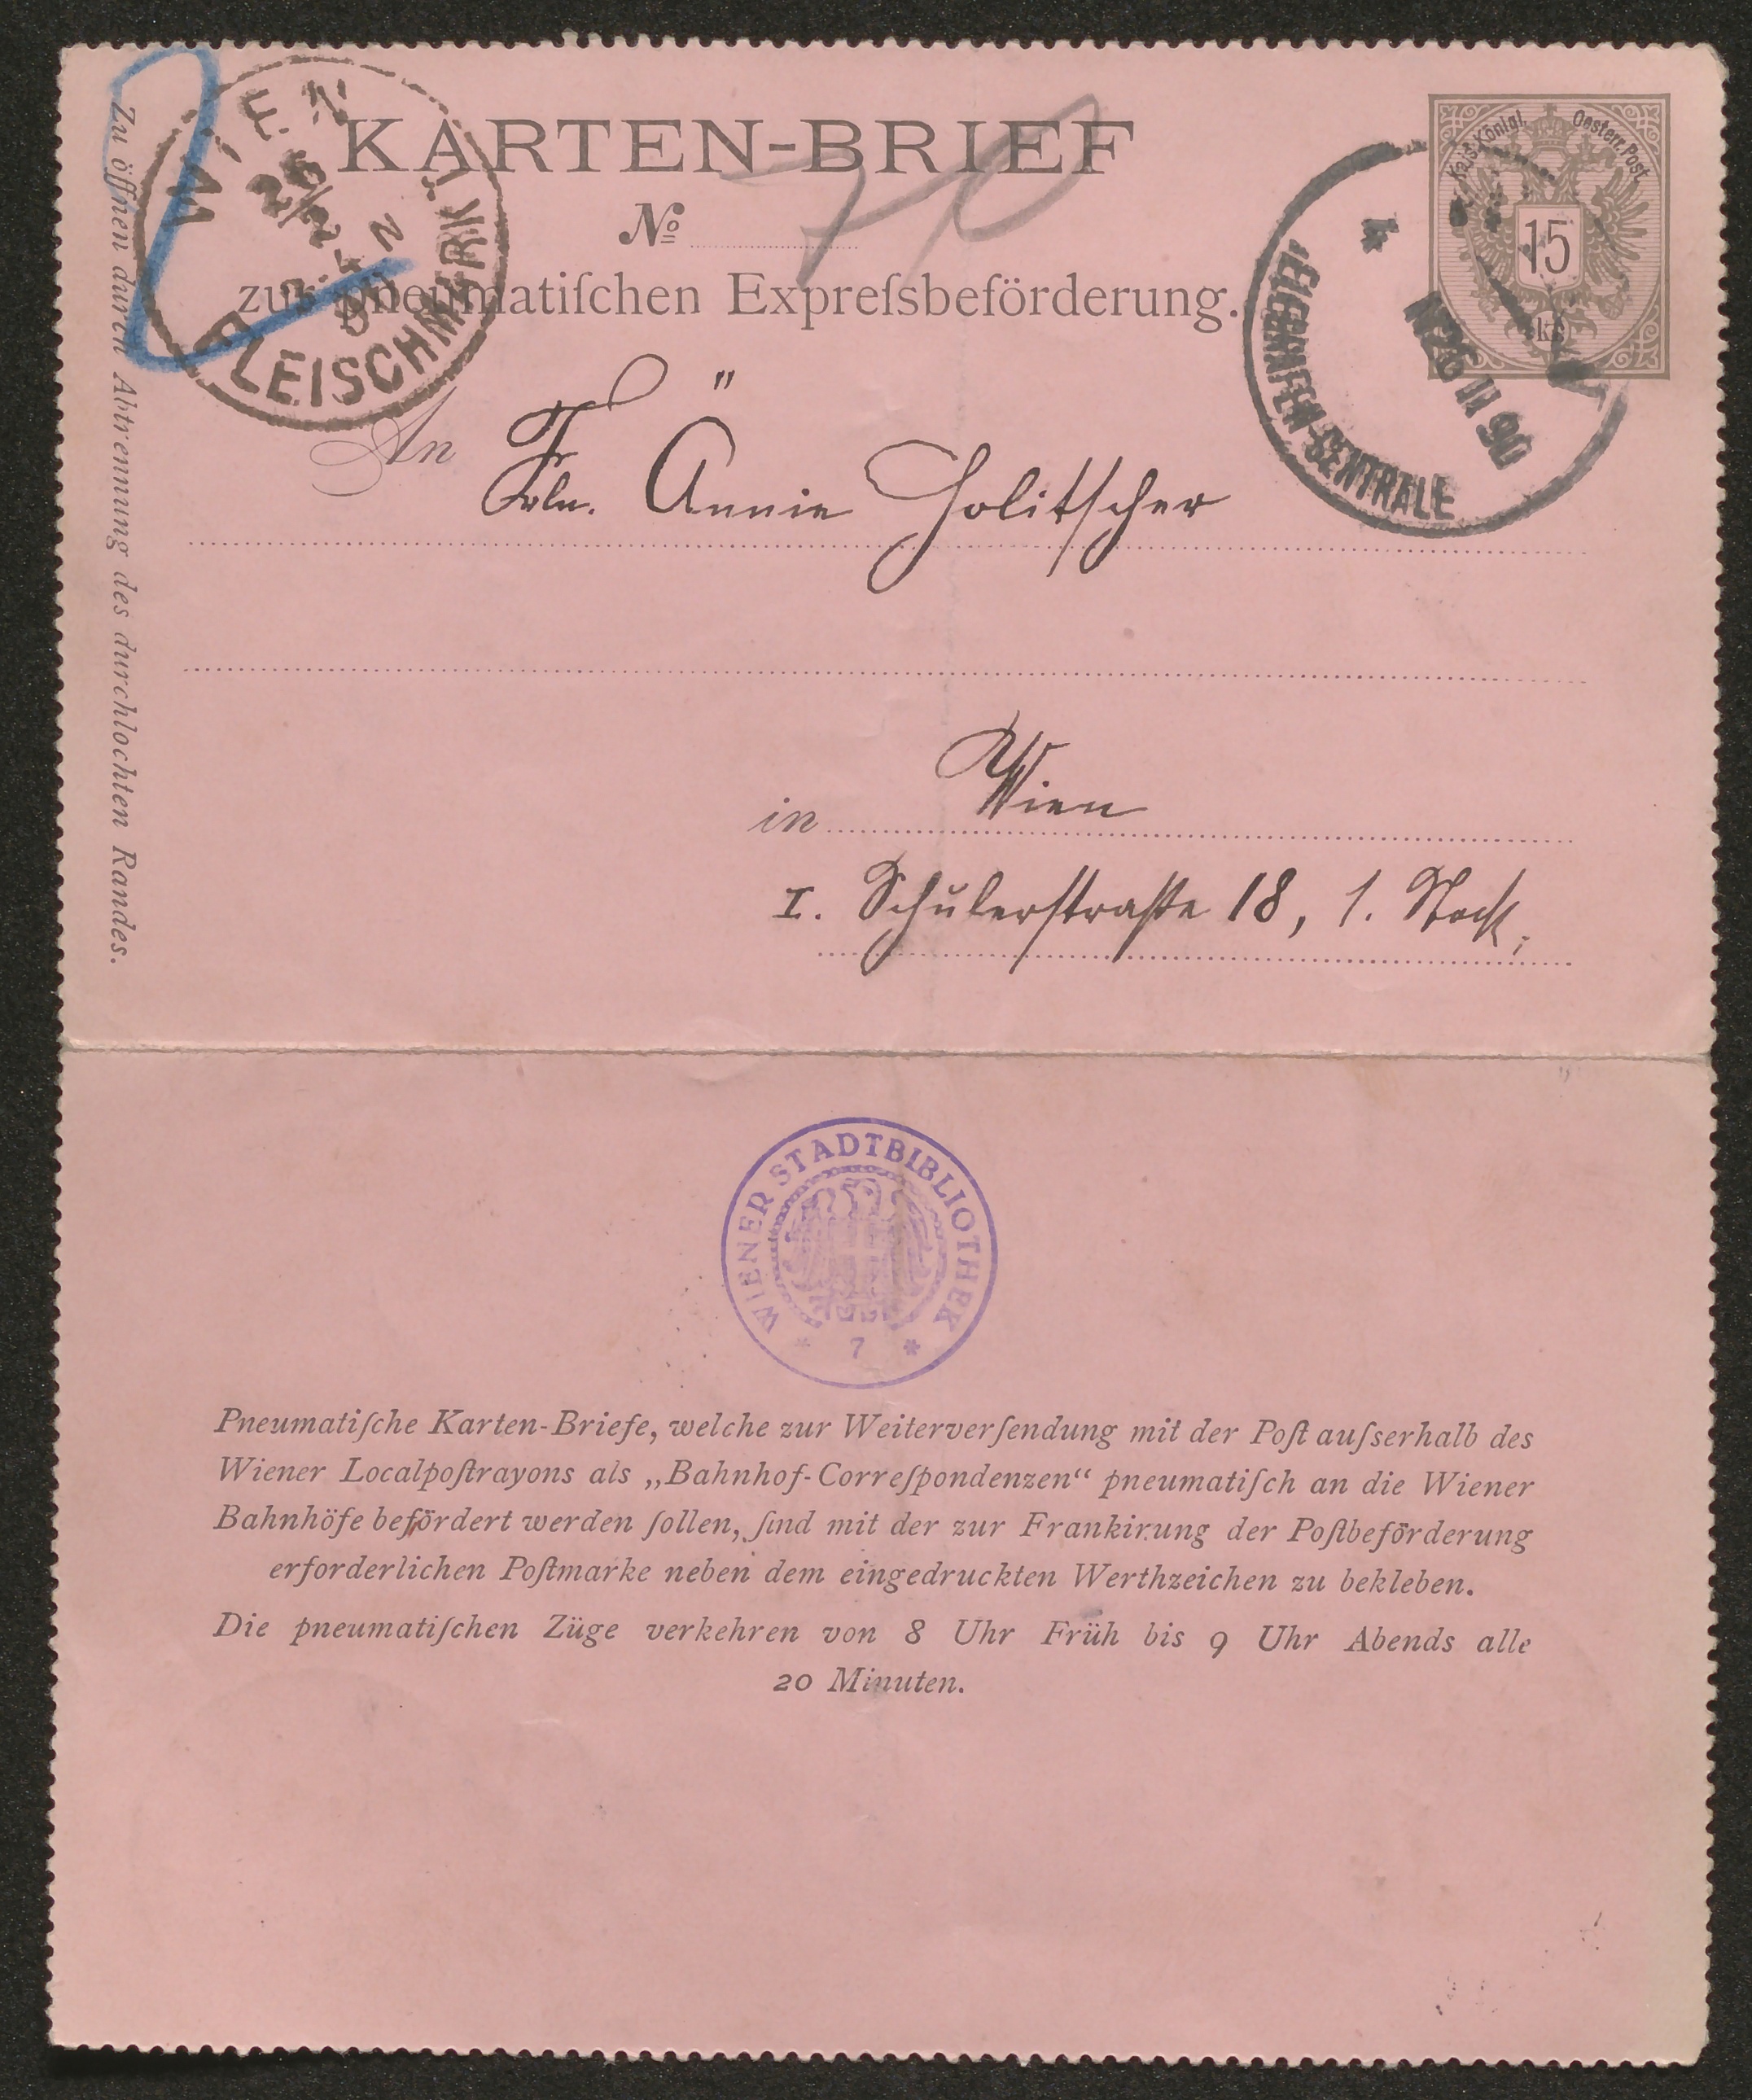 KARTEN-BRIEF
№
70
zur pneumatiſchen Expreſsbeförderung.
Zu öffnen durch Abtrennung des durchlochten Randes.
WIEN
26/3
FLEISCHMARKT
Kais. Königl. Oesterr. Post
15
kr
4
N 26 III 90
CENTRALE
An
Frln. Annie Holitscher
in Wien
I. Schulerstraße 18, 1. Stock.
WIENER STADTBIBLIOTHEK
* 7 *
Pneumatiſche Karten-Briefe, welche zur Weiterverſendung mit der Poſt auſserhalb des
Wiener Localpoſtrayons als „Bahnhof-Correſpondenzen“ pneumatiſch an die Wiener
Bahnhöfe befördert werden ſollen, ſind mit der zur Frankirung der Poſtbeförderung
erforderlichen Poſtmarke neben dem eingedruckten Werthzeichen zu bekleben.
Die pneumatiſchen Züge verkehren von 8 Uhr Früh bis 9 Uhr Abends alle
20 Minuten.